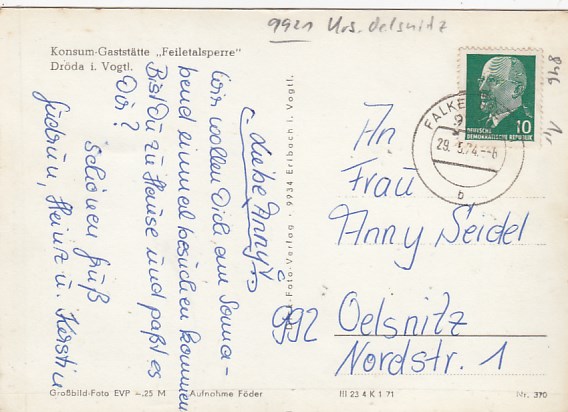 9921 Krs. Oelsnitz
Konsum-Gaststätte „Feiletalsperre"
Dröda i. Vogtl.
Liebe Anny!
Wir wollen Dich am Sonna-
bend einmal besuchen kommen
Bist Du zu Hause und paßt es
Dir?
Schönen Gruß
Gudrun, Heinz u. Kerstin
Foto-Verlag · 9934 Erlbach i. Vogtl.
FALKE
29. 5. 74 - 6
b
10
DEUTSCHE
DEMOKRATISCHE REPUBLIK
846
An
Frau
Anny Seidel
992 Oelsnitz
Nordstr. 1
Großbild-Foto EVP -,25 M Aufnahme Föder
III 23 4 K 1 71
Nr. 370